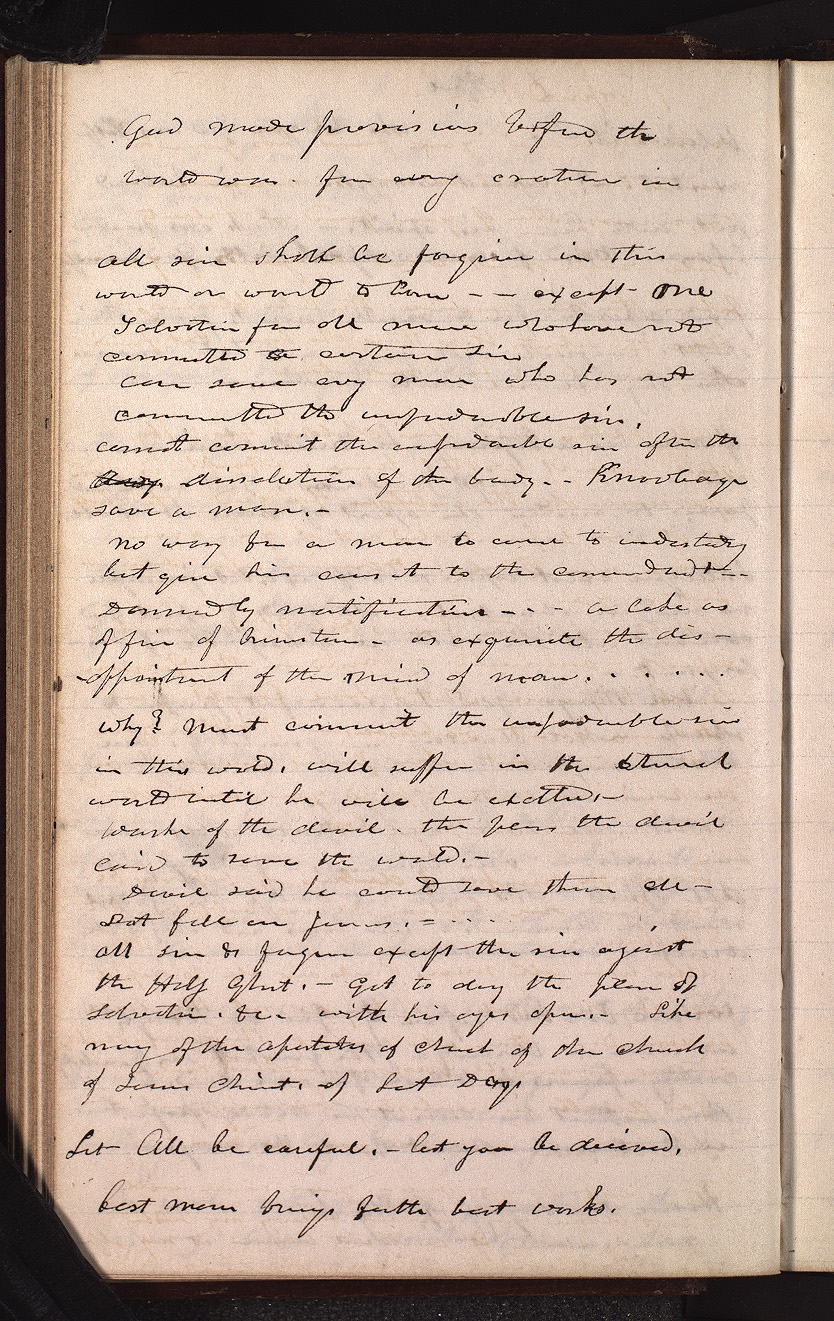 God made provisions before the
world was. for every creature in
all sin shall be forgiven in this
world or world to come – – except one
Salvation for all men who have not
committed a certain sin
can save evry man who has not
committed the unpardonable sin.
cannot commit the unpardonable sin after the
dissolution of the body. – Knowledge
save a man. –
no way for a man to come to understandg
but give his consent to the commandmt –
Damned by mortification – – – a lake as
of fire of brimstone – as exquisite the dis–
–appointment of the mind of man. . . . . .
why? Must commit the unpardonable sin
in this world. will suffer in the eternal
world until he will be exalted. –
Work of the devil. the plans the devil
laid to save the world. –
Devil said he could save them all –
Lot fell on Jesus. – . . . .
all sin &c forgiven except the sin against
the Holy Ghost. – Got to deny the plan of
salvation. &c. with his eyes open. – Like
many of the apostates of christ of the church
of Jesus Christ. of Last Days
Let All be careful. – lest you be deceived.
best man brings forth best works.